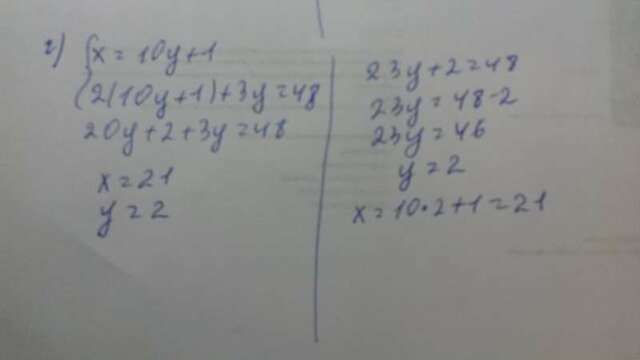 г) { x = 10y + 1
2(10y + 1) + 3y = 48
20y + 2 + 3y = 48
x = 21
y = 2
23y + 2 = 48
23y = 48 - 2
23y = 46
y = 2
x = 10 · 2 + 1 = 21